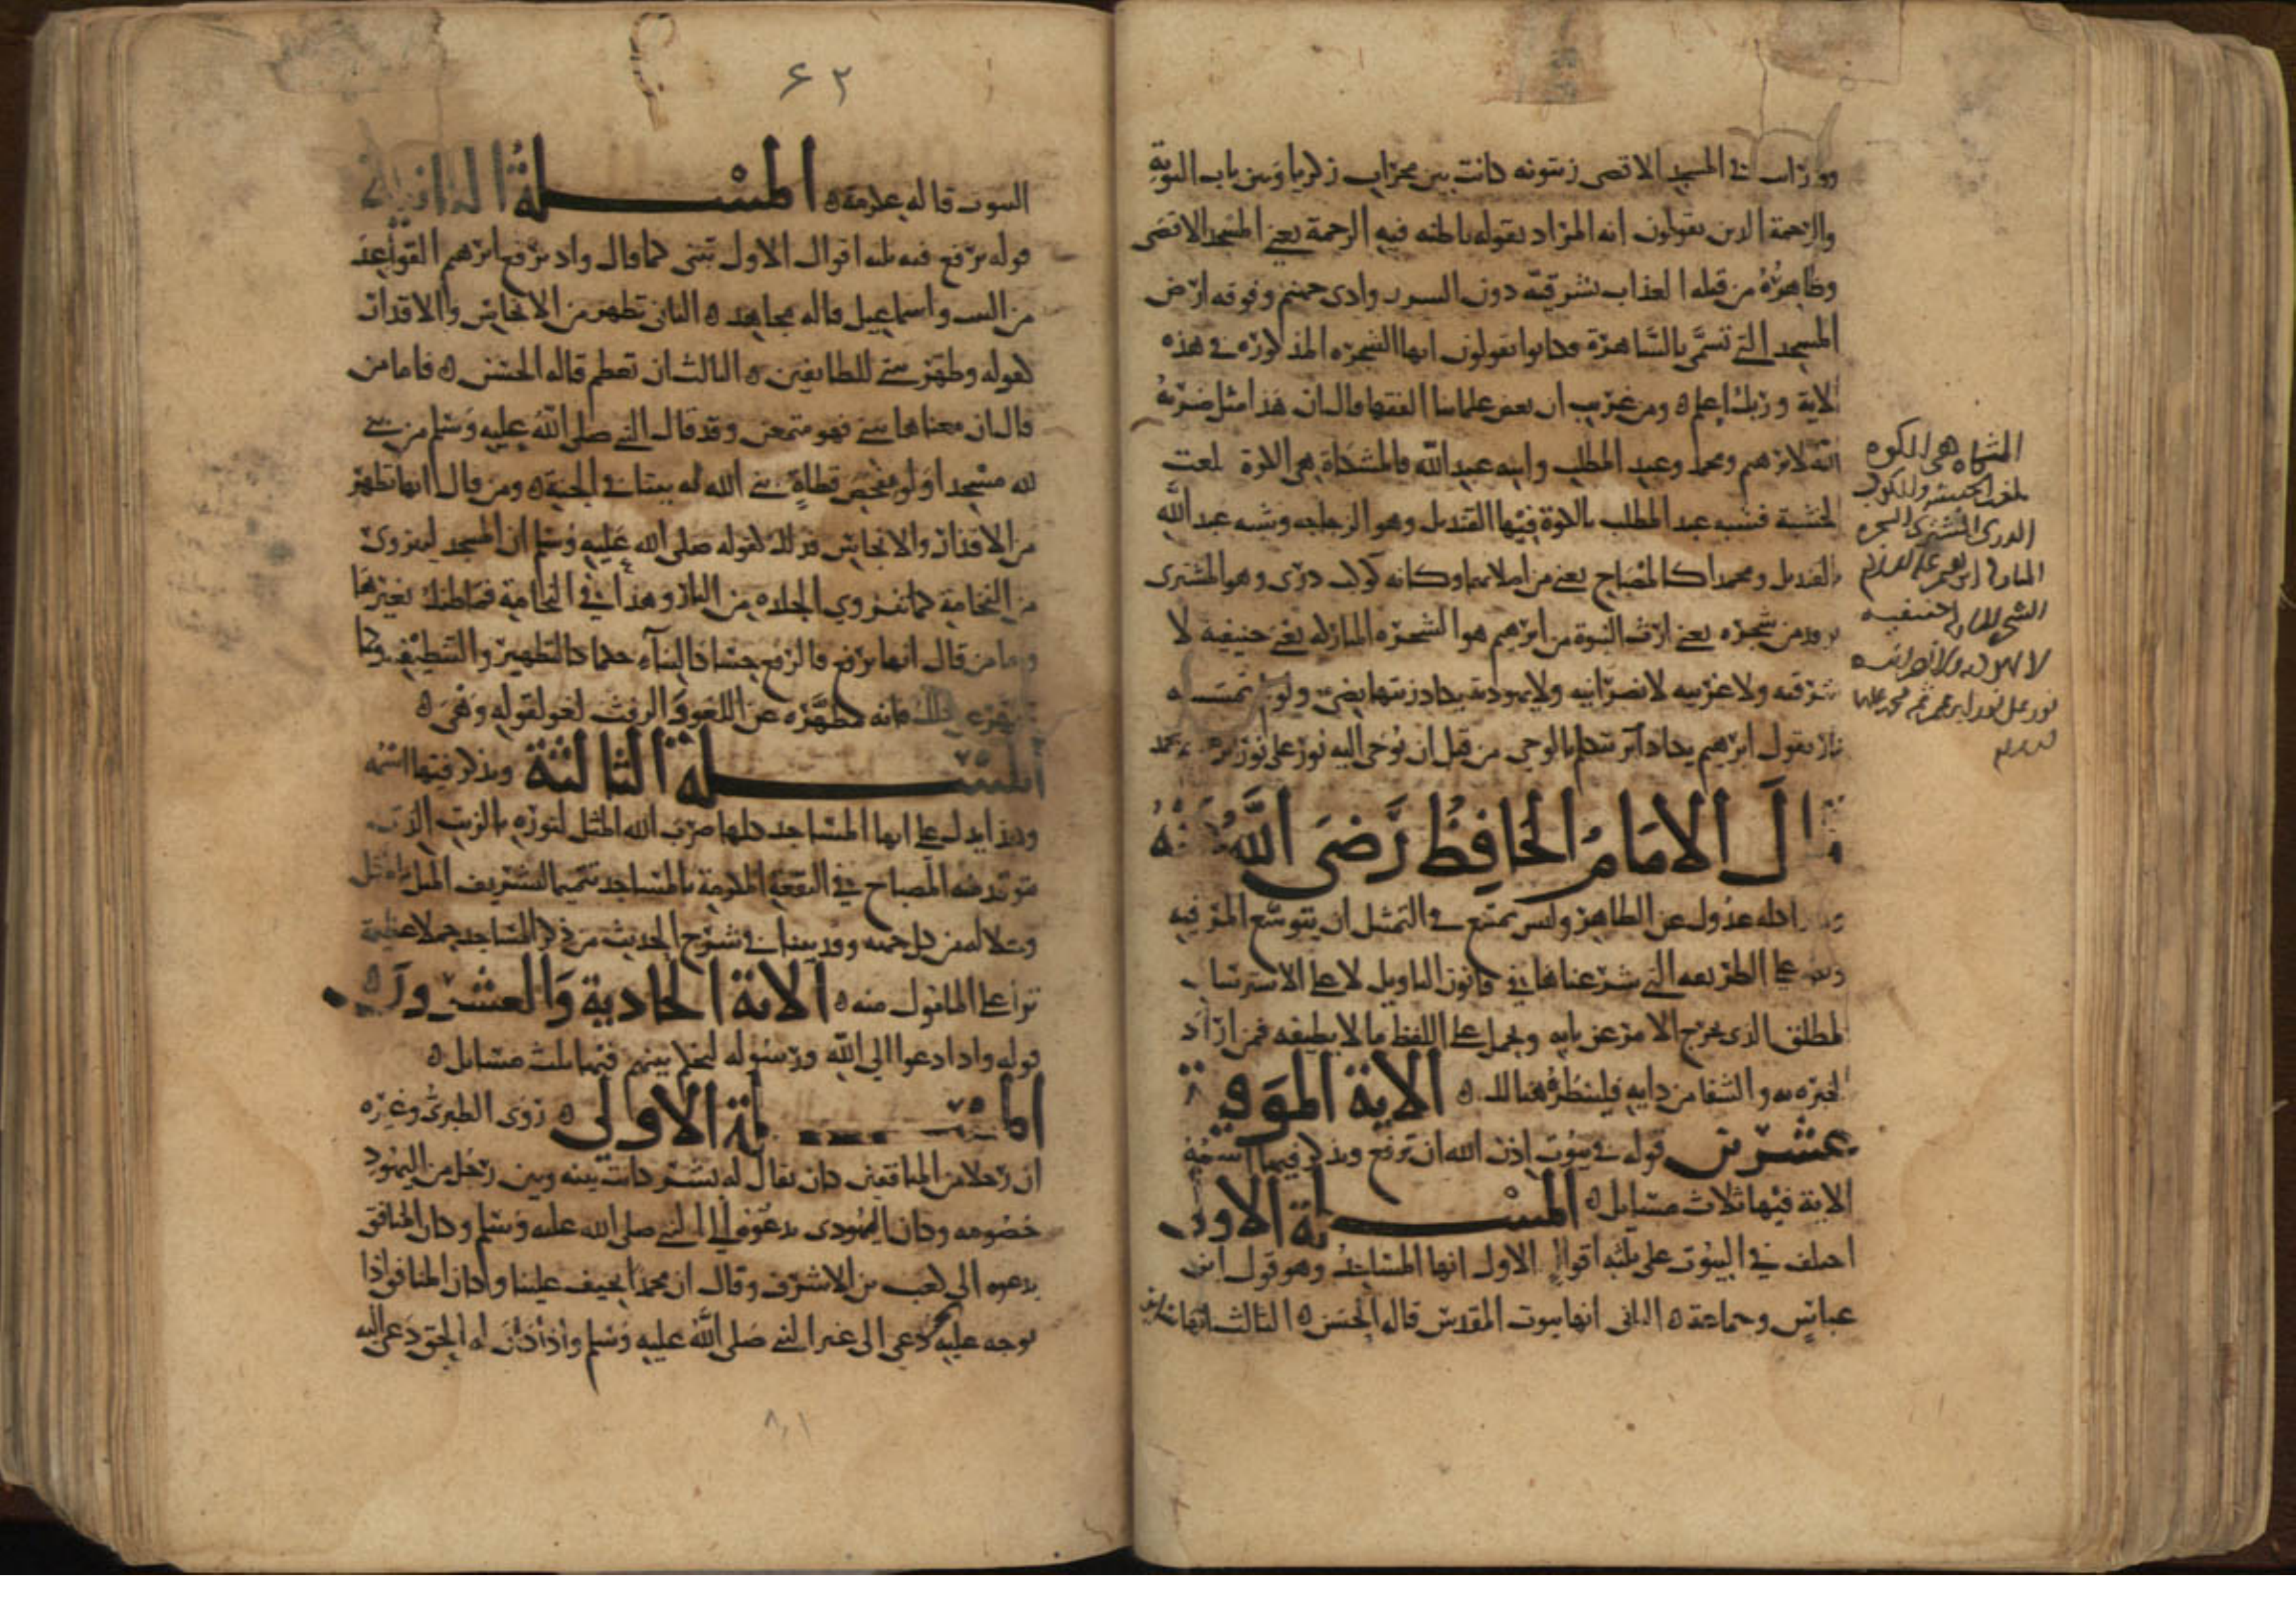 ورات في المسجد الاقصى زيتونة كانت بين محراب زكريا وبين باب التوبة
والرحمة الذين يقولون انه المراد بقوله باطنه فيه الرحمة يعني المسجد الاقصى
وظاهره من قبله العذاب بشرقيه دون السور وادي جهنم وفوقه ارض
المسجد التي تسمى بالساهرة فكانوا يقولون انها الشجرة المذكورة في هذه
الاية وربك اعلم ومن غريب ان بعض علمائنا الفقها قال ان هذا مثل ضربه
الله لابرهيم ومحمد وعبد المطلب وابنه عبد الله فالمشكاة هي الكوة بلغة
الحبشة فشبه عبد المطلب بالكوة فيها القنديل وهو الزجاجة وشبه عبد الله
بالقنديل ومحمدا كالمصباح يعني من اصلابهما وكانه كوكب دري وهو المشتري
يوقد من شجرة يعني ارث النبوة من ابرهيم هو الشجرة المباركة يعني حنيفية لا
شرقية ولا غربية لا نصرانية ولا يهودية يكاد زيتها يضي ولو لم تمسسه
نار يقول ابرهيم يكاد ان يتكلم بالوحي من قبل ان يوحى اليه نور على نور
المشكاة هي الكوة
بلغة الحبشة والكوكب
الدري المشتري الشجرة
المباركة ابرهيم عليه السلام
لا يهودية ولا نصرانية
نور على نور ابرهيم ثم محمد عليهما
قال الامام الحافظ رضي الله عنه
وهذا كله عدول عن الظاهر وليس يمتنع في التمثيل ان يتوسع المر فيه
ولكن على الطريقة التي شرعناها في قانون التاويل لا على الاسترسال
المطلق الذي يخرج الامر عن بابه ويحمل على اللفظ ما لا يطيقه فمن اراد
الخبرة به والشفا من دايه فلينظره هنالك الاية الموفية
عشرين قوله في بيوت اذن الله ان ترفع ويذكر فيها اسمه
الاية فيها ثلاث مسايل المسلة الاولى
اختلف في البيوت على ثلثة اقوال الاول انها المساجد وهو قول ابن
عباس وجماعة الثاني انها بيوت المقدس قاله الحسن الثالث انها ساير
٦٢
البيوت قاله عكرمة المسلة الثانية
قوله ترفع فيه ثلثة اقوال الاول تبنى كما قال واذ يرفع ابرهيم القواعد
من البيت واسماعيل قاله مجاهد الثاني تطهر من الانجاس والاقذار
كقوله وطهر بيتي للطايفين الثالث ان تعظم قاله الحسن فاما من
قال ان معناها تبنى فهو متمعن وقد قال النبي صلى الله عليه وسلم من بنى
لله مسجدا ولو مفحص قطاة بنى الله له بيتا في الجنة ومن قال انها تطهر
من الاقذار والانجاس فذلك لقوله صلى الله عليه وسلم ان المسجد لينزوي
من النخامة كما تنزوي الجلدة من النار وهذا في النخامة فما ظنك بغيرها
واما من قال انها ترفع فالرفع حسا كالبناء وحكما كالتطهير والتنظيف وكما
تطهر عن ذلك فانه مطهرة عن اللغو والرفث لغو لقوله وهي
المسلة الثالثة ويذكر فيها اسمه
وهذا يدل على انها المساجد كلها ضرب الله المثل لنوره بالزيت الذي
يتوقد منه المصباح في البقعة المكرمة بالمساجد تتميما لتشريف المثل بالمثل
وجلاله من كل جهة وقد بينا في شرح الحديث من ذكر المساجد جملا عظيمة
تربو على المامول منه الاية الحادية والعشرون
قوله واذا دعوا الى الله ورسوله ليحكم بينهم فيها ثلث مسايل
المسلة الاولى روى الطبري وغيره
ان رجلا من المنافقين كان يقال له بشر كانت بينه وبين رجل من اليهود
خصومة وكان اليهودي يدعوه الى النبي صلى الله عليه وسلم وكان المنافق
يدعوه الى كعب بن الاشرف وقال ان محمدا يحيف علينا وكان المنافق اذا
توجه عليه دعي الى غير النبي صلى الله عليه وسلم واذا كان له الحق دعي اليه